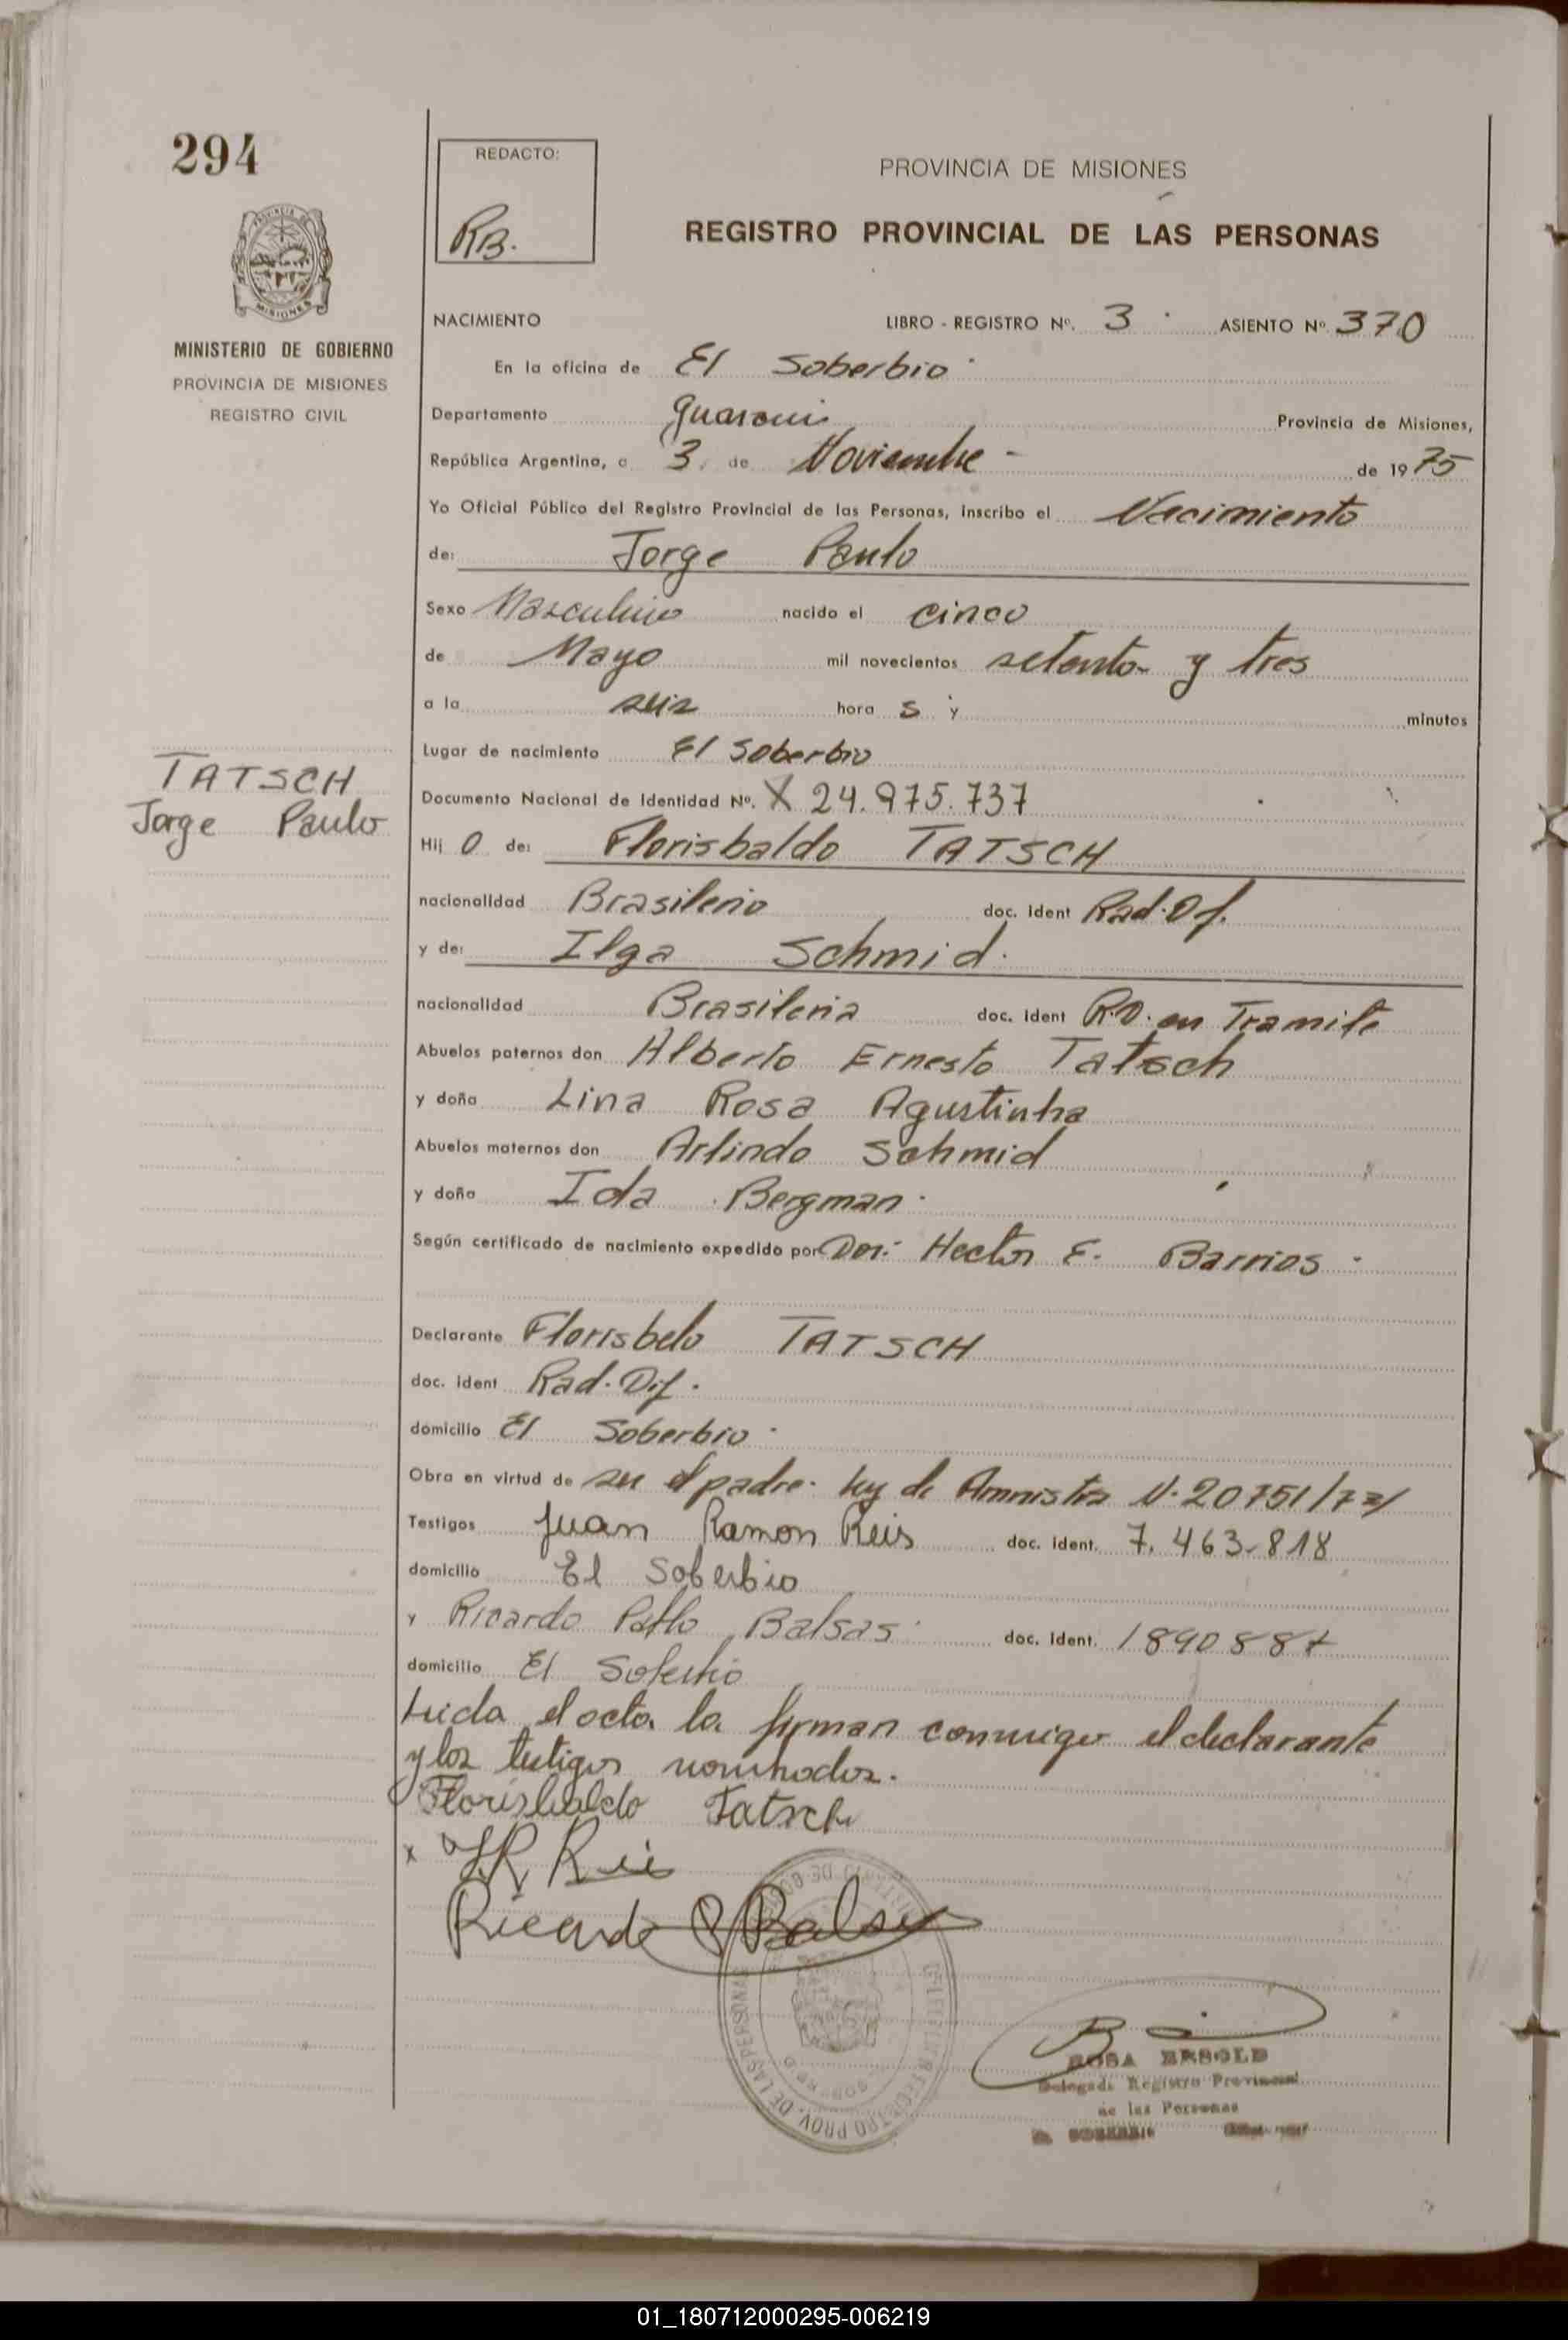 294
REDACTO:
RB.
PROVINCIA DE MISIONES
REGISTRO PROVINCIAL DE LAS PERSONAS
MISIONES
MINISTERIO DE GOBIERNO
PROVINCIA DE MISIONES
REGISTRO CIVIL
NACIMIENTO LIBRO - REGISTRO Nº. 3 ASIENTO Nº. 370
En la oficina de El Soberbio
Departamento Guarani Provincia de Misiones,
República Argentina, a 3. de Noviembre - de 1975
Yo Oficial Público del Registro Provincial de las Personas, inscribo el Nacimiento
de: Jorge Paulo
Sexo Masculino nacido el cinco
de Mayo mil novecientos setenta y tres
a la seis hora s y minutos
Lugar de nacimiento El Soberbio
TATSCH
Jorge Paulo
Documento Nacional de Identidad Nº. X 24.975.737
Hij o de: Florisbaldo TATSCH
nacionalidad Brasilerio doc. ident Rad. Of.
y de: Ilga Schmid.
nacionalidad Brasileria doc. ident R.D. en Tramite
Abuelos paternos don Alberto Ernesto Tatsch
y doña Lina Rosa Agustinha
Abuelos maternos don Arlindo Schmid
y doña Ida Bergman.
Según certificado de nacimiento expedido por Don: Hector E. Barrios -
Declarante Florisbelo TATSCH
doc. ident Rad. Dif.
domicilio El Soberbio
Obra en virtud de ser el padre. Ley de Amnistia N. 20751/73/
Testigos Juan Ramon Reis doc. ident. 7.463.818
domicilio El Soberbio
y Ricardo Pablo Balsas doc. ident. 1890887
domicilio El Soberbio
Leida el acta la firman conmigo el declarante
y los testigos nombrados.
Florisbaldo Tatsch
x J R Reis
Ricardo P Balsas
PROV. DE LAS PERSONAS
ROSA BESOLD
Delegada Registro Provincial
de las Personas
EL SOBERBIO
01_180712000295-006219